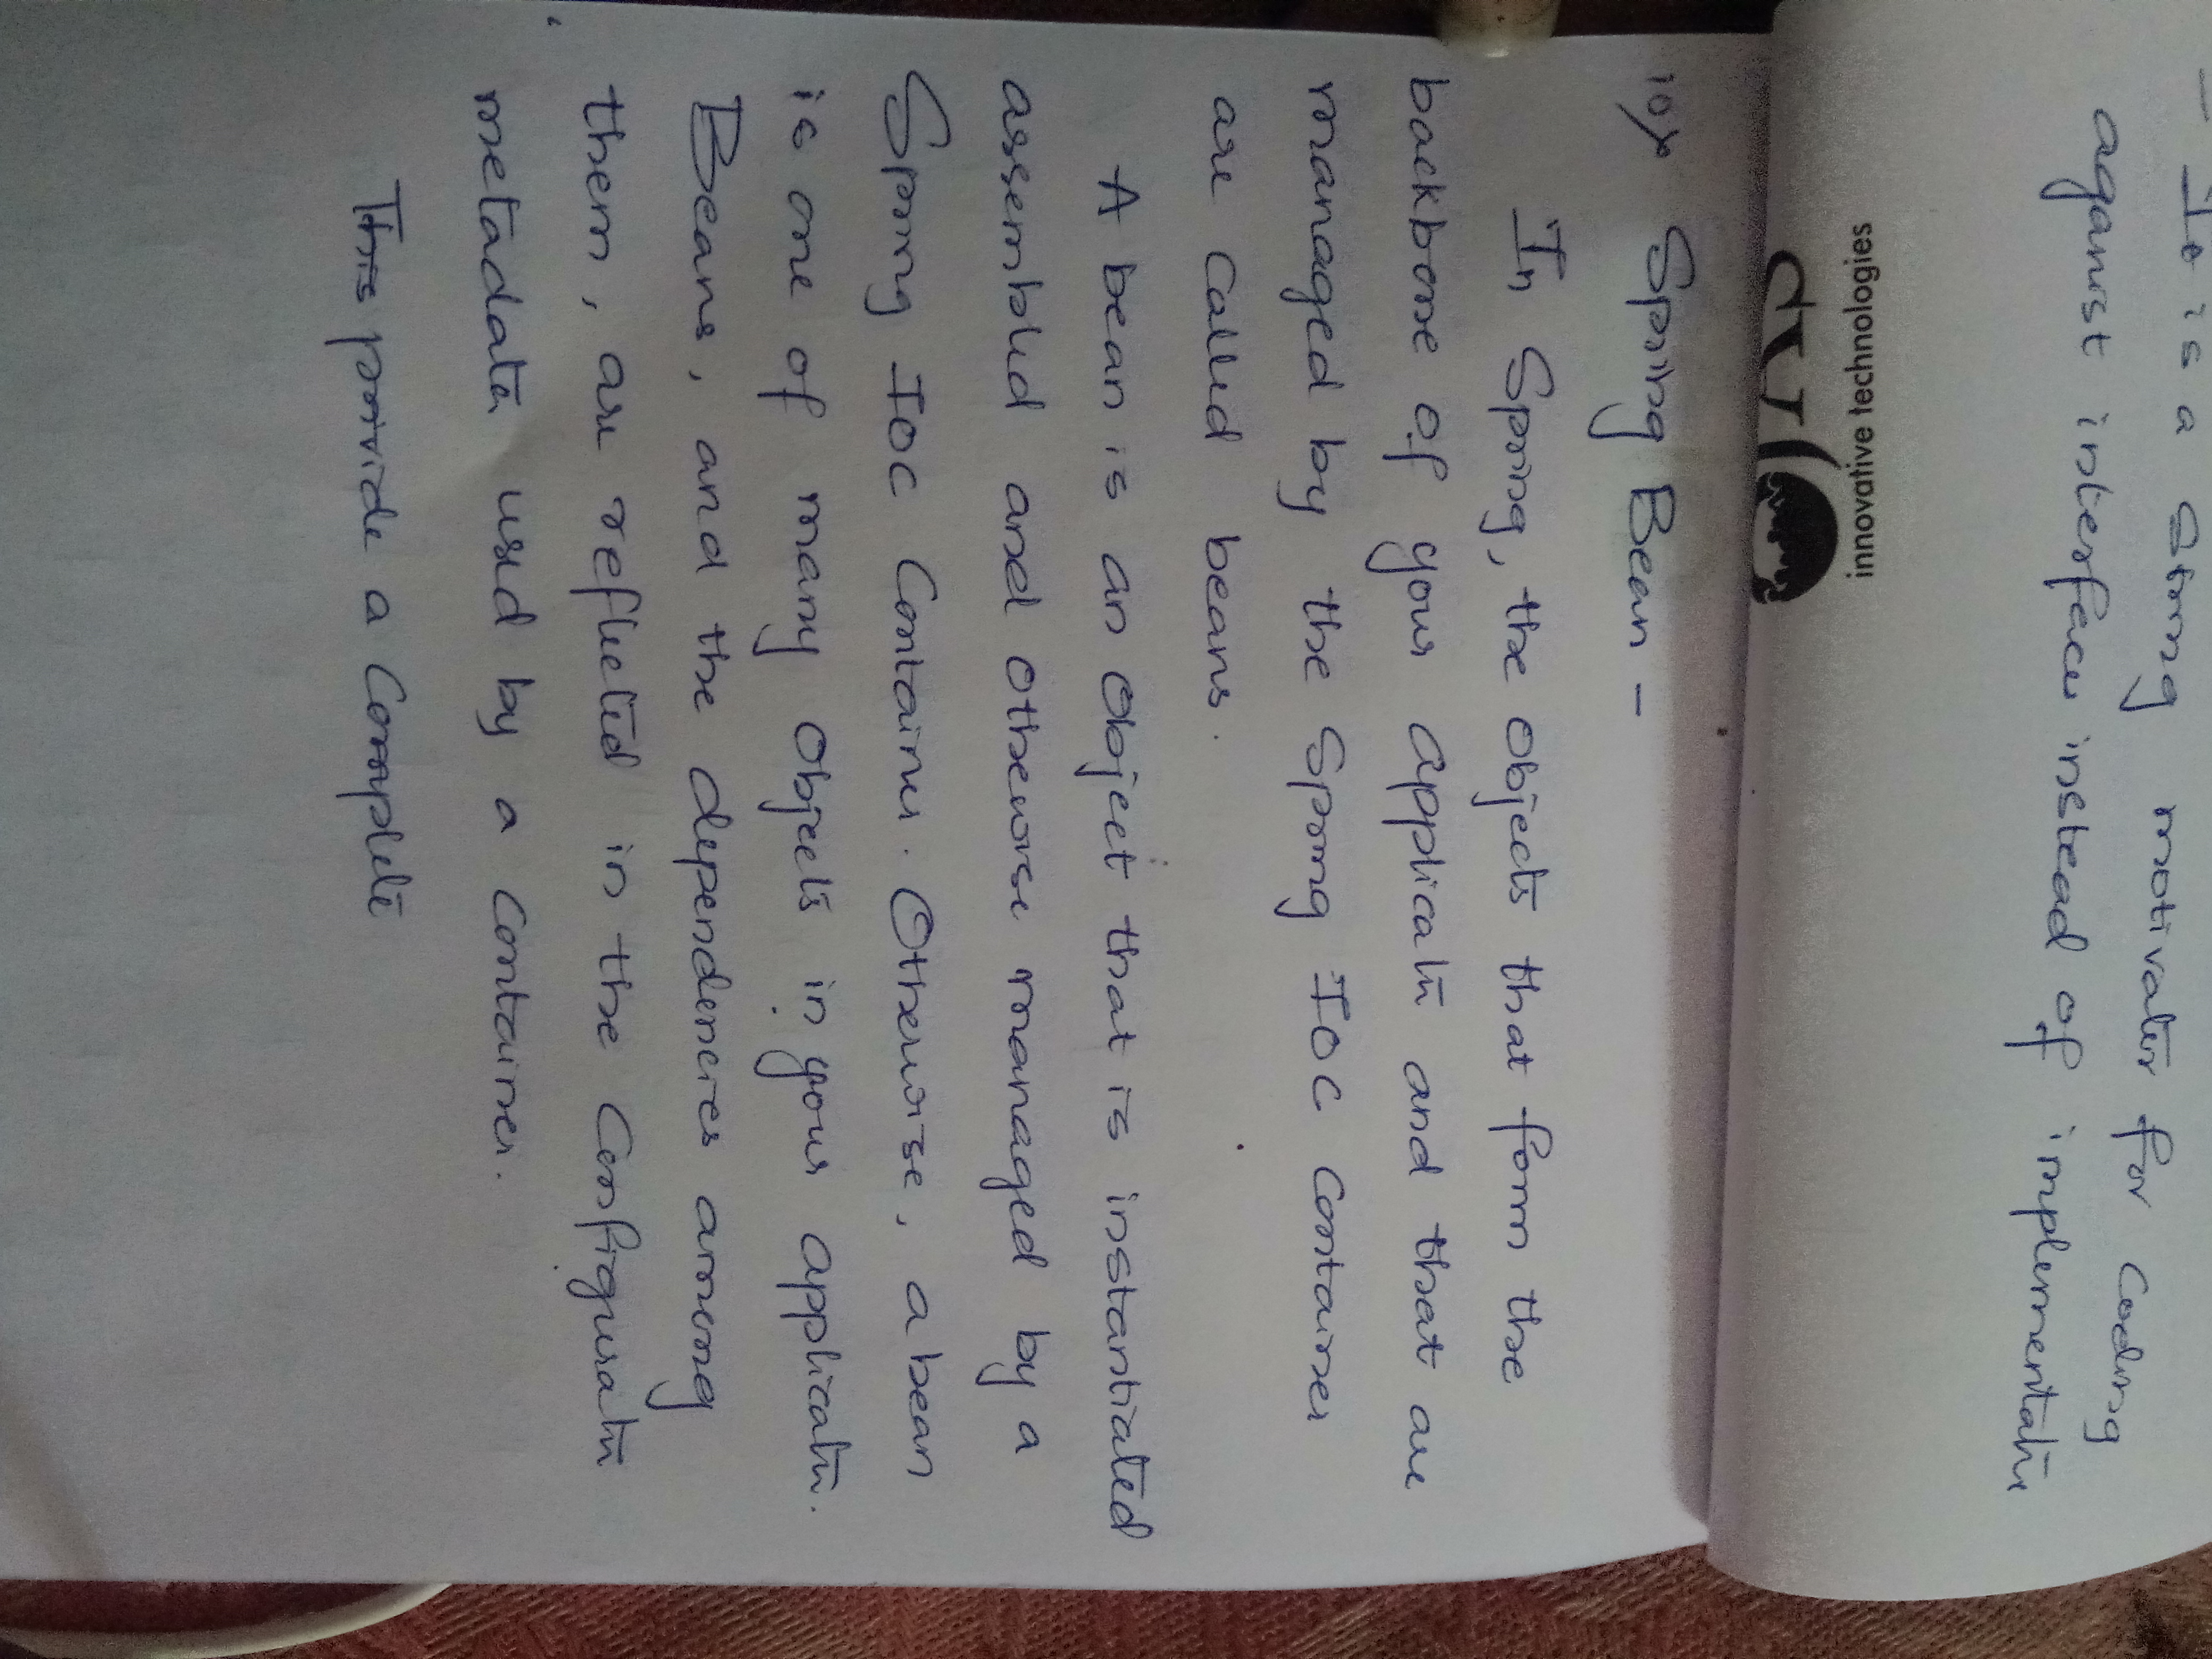 - It is a strong motivater for coding
aganist interfaces instead of implementation
innovative technologies
10> Spring Bean -
In Spring, the objects that form the
backbone of your application and that are
managed by the Spring IOC Container
are called beans.
A bean is an object that is instantiated
assembled and otherwise managed by a
Spring IOC Container. Otherwise, a bean
is one of many objects in your application.
Beans, and the dependencies among
them, are reflected in the Configuration
metadata used by a Container.
This provide a Complete